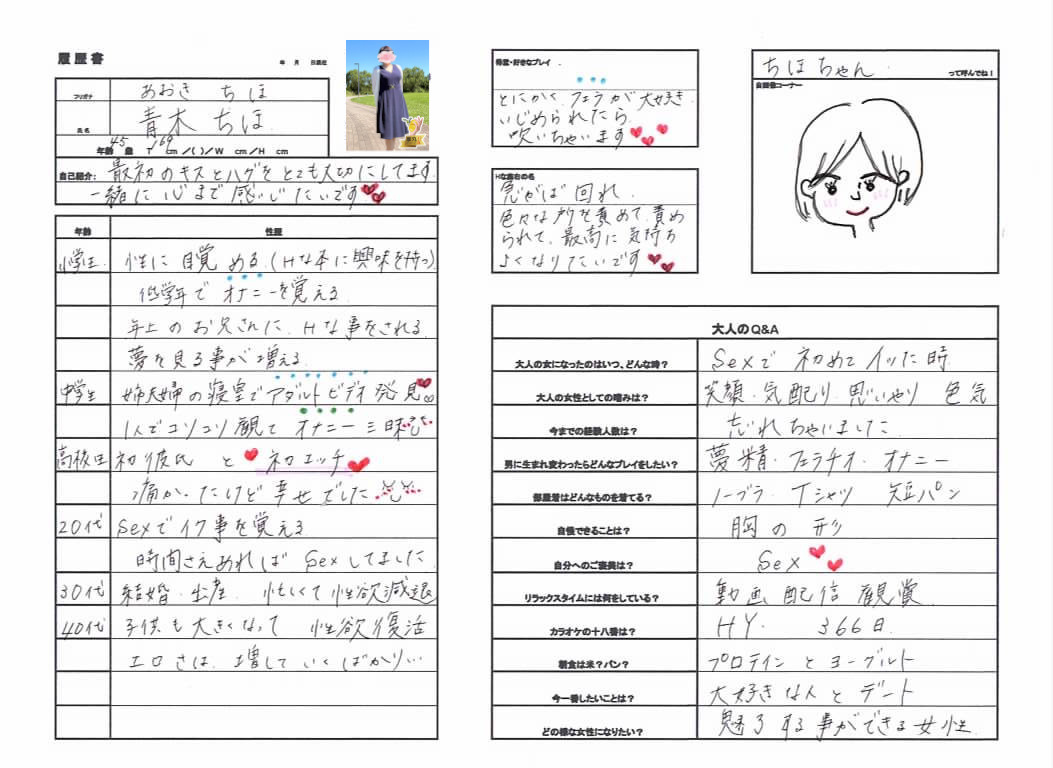 履歴書
年 月 日現在
フリガナ あおき ちほ
氏名 青木 ちほ
年齢 45 歳 T/169 cm /( )/W cm/H cm
自己紹介: 最初のキスとハグをとても大切にしてます
一緒に心まで感じたいです
年齢 性歴
20代 Sexでイク事を覚える
時間さえあれば Sexしてました
30代 結婚・出産 忙しくて性欲減退
40代 子供も大きくなって 性欲復活
エロさは、増していくばかり…
得意・好きなプレイ
とにかくフェラが大好き
いじめられたら
吹いちゃいます
Hな座右の名
急がば回れ
色々な所を責めて、責め
られて、最高に気持ち
よくなりたいです
ちほちゃん って呼んでね!
自画像コーナー
大人のQ&A
大人の女になったのはいつ、どんな時? Sexで初めてイッた時
大人の女性としての嗜みは? 笑顔・気配り・思いやり 色気
今までの経験人数は? 忘れちゃいました
男に生まれ変わったらどんなプレイをしたい? 夢精・フェラチオ・オナニー
部屋着はどんなものを着てる? ノーブラ・Tシャツ 短パン
自慢できることは? 胸の形
自分へのご褒美は? Sex
リラックスタイムには何をしている? 動画配信観賞
カラオケの十八番は? HY. 366日
朝食は米?パン? プロテインとヨーグルト
今一番したいことは? 大好きな人とデート
どの様な女性になりたい? 魅了する事ができる女性